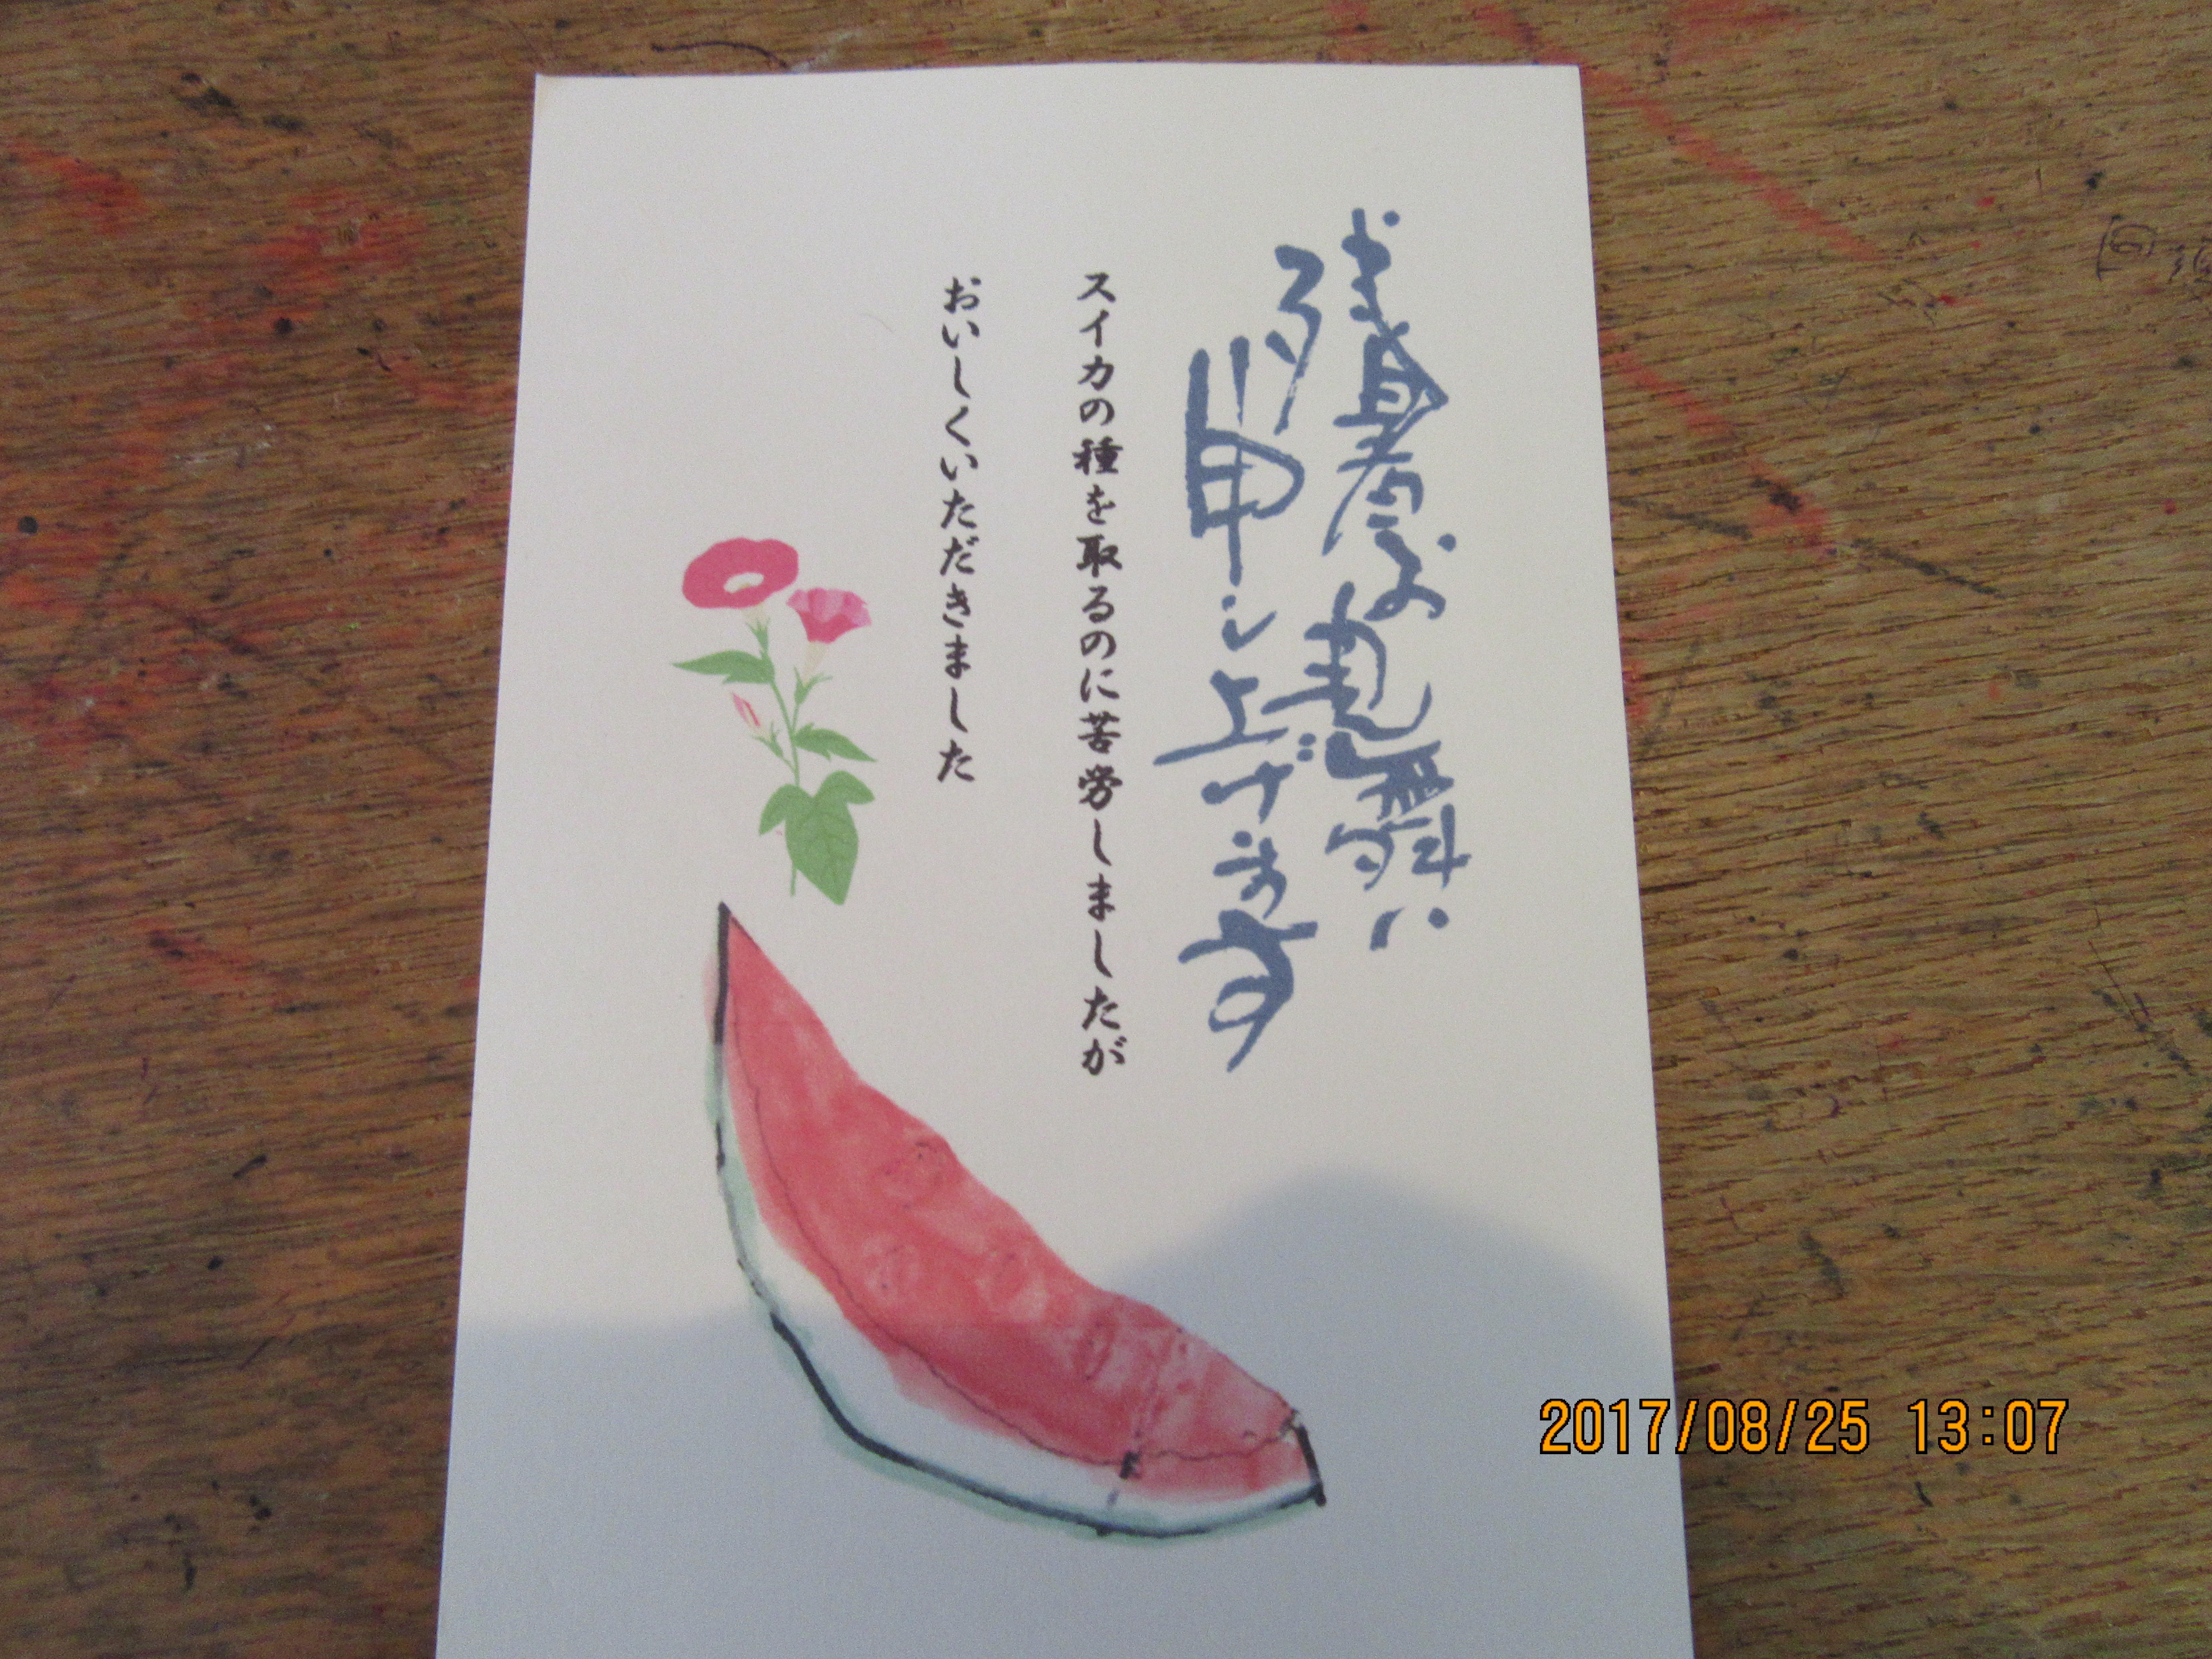 残暑お見舞い
申し上げます
スイカの種を取るのに苦労しましたが
おいしくいただきました
2017/08/25 13:07